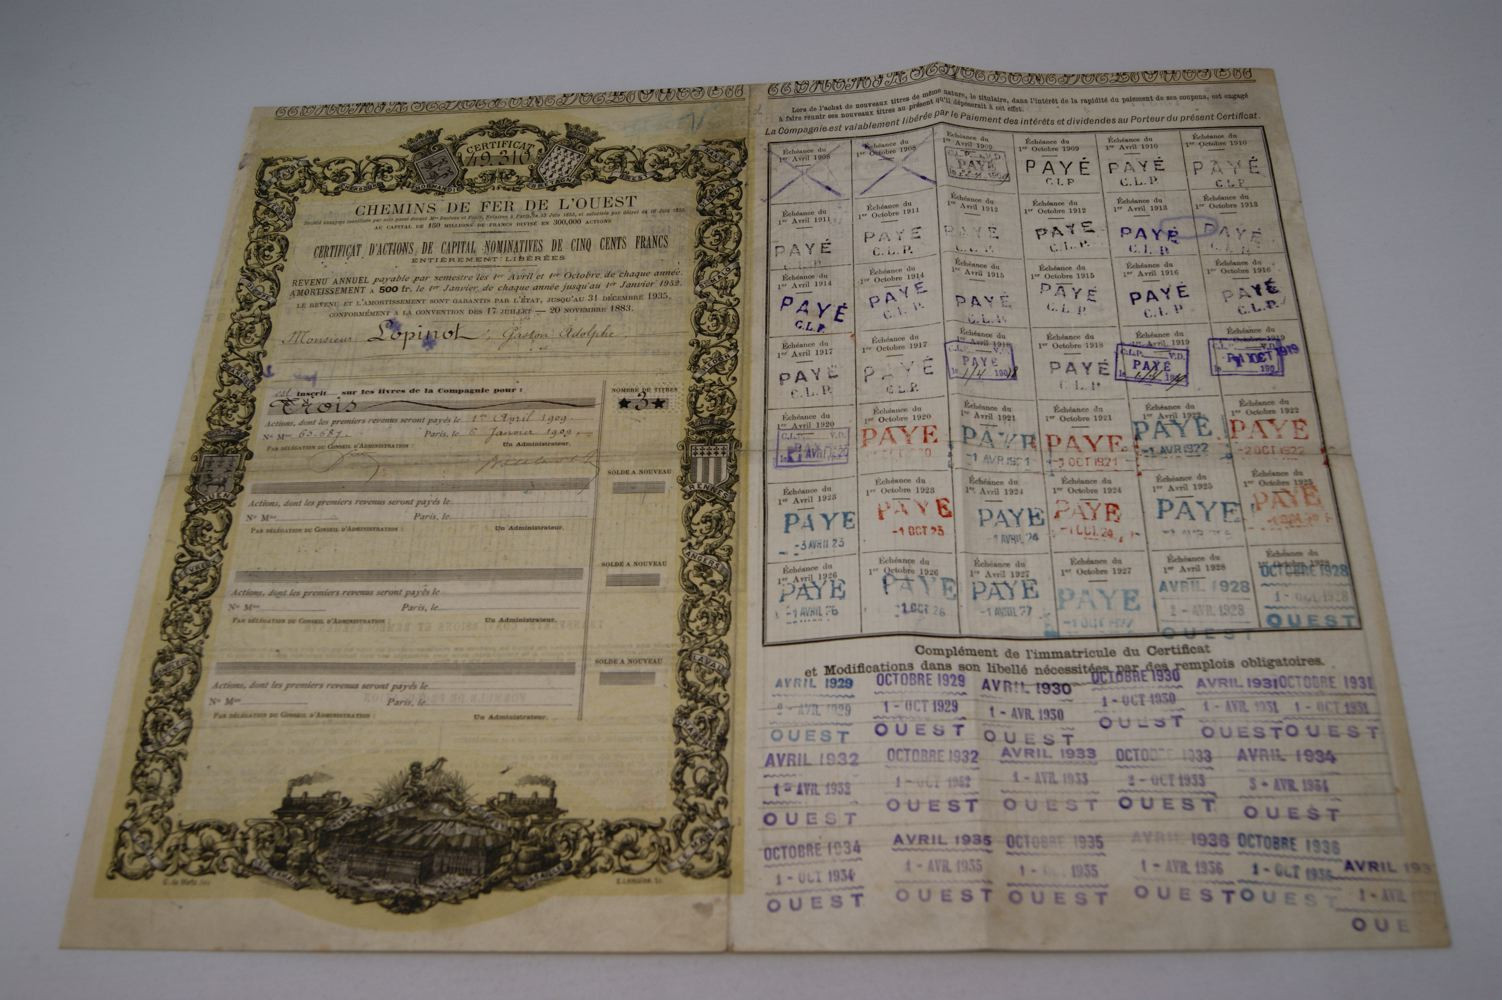 CERTIFICAT
49.310
CHEMINS DE FER DE L'OUEST
AU CAPITAL DE 150 MILLIONS DE FRANCS DIVISÉ EN 300,000 ACTIONS
CERTIFICAT D'ACTIONS DE CAPITAL NOMINATIVES DE CINQ CENTS FRANCS
ENTIÈREMENT LIBÉRÉES
REVENU ANNUEL payable par semestre les 1er Avril et 1er Octobre de chaque année.
AMORTISSEMENT A 500 fr. le 1er Janvier de chaque année jusqu'au 1er Janvier 1952.
LE REVENU ET L'AMORTISSEMENT SONT GARANTIS PAR L'ÉTAT, JUSQU'AU 31 DÉCEMBRE 1935,
CONFORMÉMENT A LA CONVENTION DES 17 JUILLET — 20 NOVEMBRE 1883.
Monsieur Lopinot, Gaston Adolphe
est inscrit sur les livres de la Compagnie pour :
NOMBRE DE TITRES
Trois
★3★
Actions, dont les premiers revenus seront payés le 1er Avril 1909
Nº Mle 63.687. Paris, le 6 Janvier 1909
PAR DÉLÉGATION DU CONSEIL D'ADMINISTRATION : Un Administrateur.
SOLDE A NOUVEAU
Actions, dont les premiers revenus seront payés le
Nº Mle Paris, le
PAR DÉLÉGATION DU CONSEIL D'ADMINISTRATION : Un Administrateur.
SOLDE A NOUVEAU
Actions, dont les premiers revenus seront payés le
Nº Mle Paris, le
PAR DÉLÉGATION DU CONSEIL D'ADMINISTRATION : Un Administrateur.
SOLDE A NOUVEAU
Actions, dont les premiers revenus seront payés le
Nº Mle Paris, le
PAR DÉLÉGATION DU CONSEIL D'ADMINISTRATION : Un Administrateur.
ROUEN
RENNES
ANGERS
LAVAL
Lors de l'achat de nouveaux titres de même nature, le titulaire, dans l'intérêt de la rapidité du paiement de ses coupons, est engagé
à faire réunir ses nouveaux titres au présent qu'il déposerait à cet effet.
La Compagnie est valablement libérée par le Paiement des intérêts et dividendes au Porteur du présent Certificat.
Échéance du 1er Avril 1908
Échéance du 1er Octobre 1908
Échéance du 1er Avril 1909 PAYÉ
Échéance du 1er Octobre 1909 PAYÉ C.L.P.
Échéance du 1er Avril 1910 PAYÉ C.L.P.
Échéance du 1er Octobre 1910 PAYÉ C.L.P.
Échéance du 1er Avril 1911 PAYÉ
Échéance du 1er Octobre 1911 PAYÉ C.L.P.
Échéance du 1er Avril 1912 PAYÉ C.L.P.
Échéance du 1er Octobre 1912 PAYÉ C.L.P.
Échéance du 1er Avril 1913 PAYÉ C.L.P.
Échéance du 1er Octobre 1913 PAYÉ C.L.P.
Échéance du 1er Avril 1914 PAYÉ C.L.P.
Échéance du 1er Octobre 1914 PAYÉ C.L.P.
Échéance du 1er Avril 1915 PAYÉ C.L.P.
Échéance du 1er Octobre 1915 PAYÉ C.L.P.
Échéance du 1er Avril 1916 PAYÉ C.L.P.
Échéance du 1er Octobre 1916 PAYÉ C.L.P.
Échéance du 1er Avril 1917 PAYÉ C.L.P.
Échéance du 1er Octobre 1917 PAYÉ C.L.P.
Échéance du 1er Avril 1918 C.L.P. V.D. PAYÉ
Échéance du 1er Octobre 1918 PAYÉ C.L.P.
Échéance du 1er Avril 1919 C.L.P. V.D. PAYÉ
Échéance du 1er Octobre 1919 C.L.P. V.D. 1 OCT 1919
Échéance du 1er Avril 1920 C.L.P. V.D. AVRIL 20
Échéance du 1er Octobre 1920 PAYE
Échéance du 1er Avril 1921 PAYE -1 AVR 1921
Échéance du 1er Octobre 1921 PAYE OCT 1921
Échéance du 1er Avril 1922 PAYE -1 AVR 1922
Échéance du 1er Octobre 1922 PAYE -2 OCT 1922
Échéance du 1er Avril 1923 PAYE -3 AVRIL 23
Échéance du 1er Octobre 1923 PAYE -1 OCT 23
Échéance du 1er Avril 1924 PAYE
Échéance du 1er Octobre 1924 PAYE
Échéance du 1er Avril 1925 PAYE
Échéance du 1er Octobre 1925 PAYE
Échéance du 1er Avril 1926 PAYE -1 AVRIL 26
Échéance du 1er Octobre 1926 PAYE -1 OCT 26
Échéance du 1er Avril 1927 PAYE -1 AVRIL 27
Échéance du 1er Octobre 1927 PAYE
Échéance du 1er Avril 1928 AVRIL 1928 2 - AVR. 1928 OUEST
Échéance du OCTOBRE 1928 1 - OCT 1928 OUEST
Complément de l'immatricule du Certificat
et Modifications dans son libellé nécessitées par des remplois obligatoires.
AVRIL 1929 OCTOBRE 1929 AVRIL 1930 OCTOBRE 1930 AVRIL 1931 OCTOBRE 1931
2 - AVR. 1929 1 - OCT 1929 1 - AVR. 1930 1 - OCT 1930 1 - AVR. 1931 1 - OCT. 1931
OUEST OUEST OUEST OUEST OUEST OUEST
AVRIL 1932 OCTOBRE 1932 AVRIL 1933 OCTOBRE 1933 AVRIL 1934
1 - AVR. 1932 1 - OCT 1932 1 - AVR. 1933 2 - OCT 1933 3 - AVR. 1934
OUEST OUEST OUEST OUEST OUEST
OCTOBRE 1934 AVRIL 1935 OCTOBRE 1935 AVRIL 1936 OCTOBRE 1936 AVRIL 193
1 - OCT 1934 1 - AVR. 1935 1 - 1935 1 - AVR. 1936 1 - OCT 1936 1 - AVR.
OUEST OUEST OUEST OUEST OUEST OUE